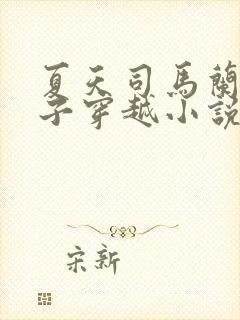 夏天司馬蘭
子穿越小說
宋新